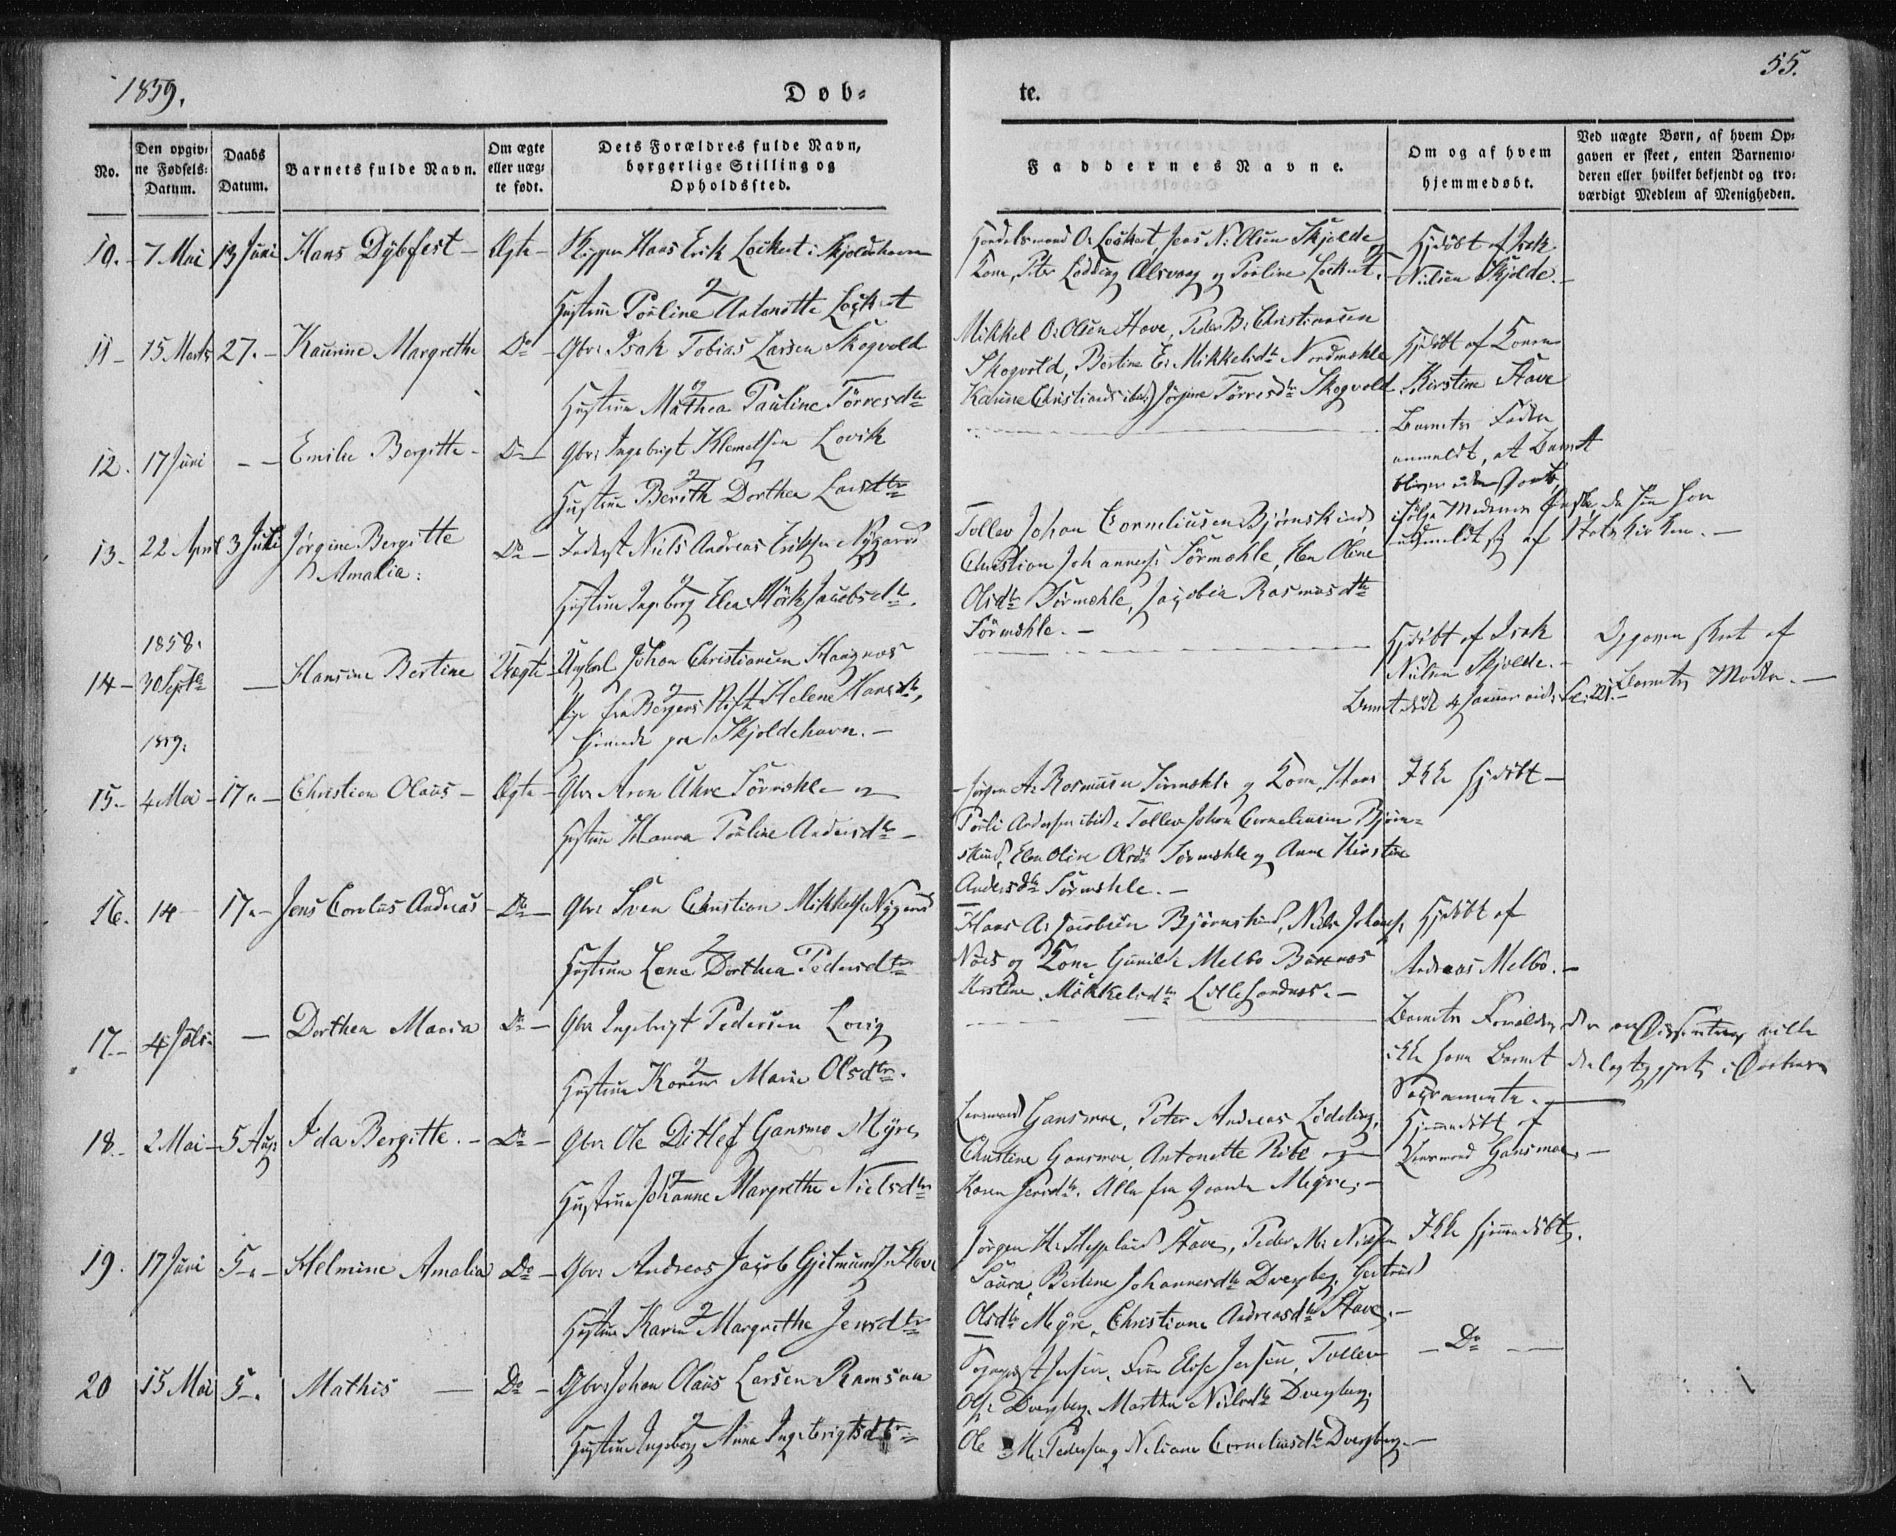 1859.
Døb-
te.
55.
No.
Den opgiv-
ne Fødsels-
Datum.
Daabs
Datum.
Barnets fulde Navn.
Om ægte
eller uæg-
te født.
Dets Forældres fulde Navn,
borgerlige Stilling og
Opholdssted.
Faddernes Navne.
Om og af hvem
hjemmedøbt.
Ved uægte Børn, af hvem Op-
gaven er skeet, enten Barnemo-
deren eller hvilket bekjendt og tro-
værdigt Medlem af Menigheden.
10. 7 Mai 13 Juni Hans Dybfest Ægte Skipper Hans Erik Lockert i Skjoldehavn
og
Hustrue Pouline Antonette Lockert
Handelsmand O. Lockert Jens N. Olsen Skjolde og
Kone, Peter Lødding Alsvaag og Pouline Lockert.
Hjdøbt af Isak
Nielsen Skjolde.
11 15 Marts 27. Kaurine Margrethe Do Gbr. Isak Tobias Larsen Skogvold
og
Hustrue Mathea Pauline Tørresdtr
Mikkel O. Olsen Stave, Peder B. Christiansen
Skogvold, Bertine E. Mikkelsdtr Nordmehle
Karine Christiansd ibid. Jørgine Tørresdtr Skogvold
Hjdøbt af Konen
Kirstine Stave
12. 17 Juni Emilie Bergitte Do Gbr. Ingebrigt Klemetsen Lovik
og
Hustrue Berith Dorthea Larsdtr
Barnets Fader
anmeldt, at Barnet
bliver uden Daab,
ifølge Moderens Ønske, da hun har
udmeldt sig af Statskirken.
13. 22 April 3 Juli Jørgine Bergitte
Amalia: Do Inderst Niels Andreas Eriksen Nygaard
og
Hustrue Ingeborg Elen Mørk Jacobsdtr.
Tollev Johan Corneliusen Bjørnskind,
Christian Johannes. Sørmehle, Elen Oline
Olsdtr Sørmehle, Jacobia Rasmusdtr
Sørmehle.
1858.
14 30 Septbr Hansine Bertine Uægte Ungkarl Johan Christiansen Haugnæs
og
Pige fra Bergens Stift Helene Hansdtr,
tjenende paa Skjoldehavn.
Hjdøbt af Isak
Nielsen Skjolde.
Barnet døde 4 Januar
Opgaven skeet af
Barnets Moder.
1859.
15. 4 Mai 17. Christian Olaus Ægte Gbr. Aron Uhre Sørmehle og
Hustrue Hanna Pouline Andersdtr
Jørgen A. Rasmusen Sørmehle og Kone, Hans
Pouli Andersen ibid. Tollev Johan Corneliusen Bjørn-
skind, Elen Oline Olsdtr Sørmehle og Anne Kirstine
Andersdtr Sørmehle.
Ikke hjdøbt
16. 14 17. Jens Corelius Andreas Do Gbr. Sven Christian Mikkelsen Nygaard
og
Hustrue Lena Dorthea Pedersdtr
Hans A. Jacobsen Bjørnskind, Niels Johans.
Næs og Kone Gunild Melbo
Kirstine Mikkelsdtr Lillesandnæs.
Hjdøbt af
Andreas Melbo.
17. 4 Juli Dorthea Maria Do Gbr Ingebrigt Pedersen Lovig
og
Hustrue Karen Marie Olsdtr.
Barnets Forældre, der ere Dissentere, ville
ikke have Barnet deelagtiggjort i Daabens
Sacramente.
18. 2 Mai 5 Aug. Ida Bergitte. Do Gbr. Ole Ditlef Gansmo Myre
og
Hustrue Johanne Margrethe Nielsdtr
Lensmand Gansmoe, Peter Andreas Lødding,
Christine Gansmoe, Antonette Rite og
Karen Jensdtr. Alle fra Gaarden Myre.
Hjemmedøbt af
Lensmand Gansmoe.
19. 17 Juni 5. Helmine Amalia Do Gbr. Andreas Jacob Gjetmundsen Stave
og
Hustrue Karen Margrethe Jensdtr
Jørgen H. Heppelund Stave, Peder M. Nielsen
Saura, Bertine Johannesdtr Dverberg, Gertrud
Olsdtr Myre, Christiane Andreasdtr Stave.
Ikke hjemmedøbt.
20 15 Mai 5. Mathis Do Gbr. Johan Olaus Larsen Ramsaa
og
Hustrue Ingeborg Anna Ingebrigtsdtr
Jensen, Frue Elise Jensen, Tollev
Ols. Dverberg, Martha Nielsdtr Dverberg,
Ole M. Pedersen og Neliane Corneliusdtr Dverberg.
Do